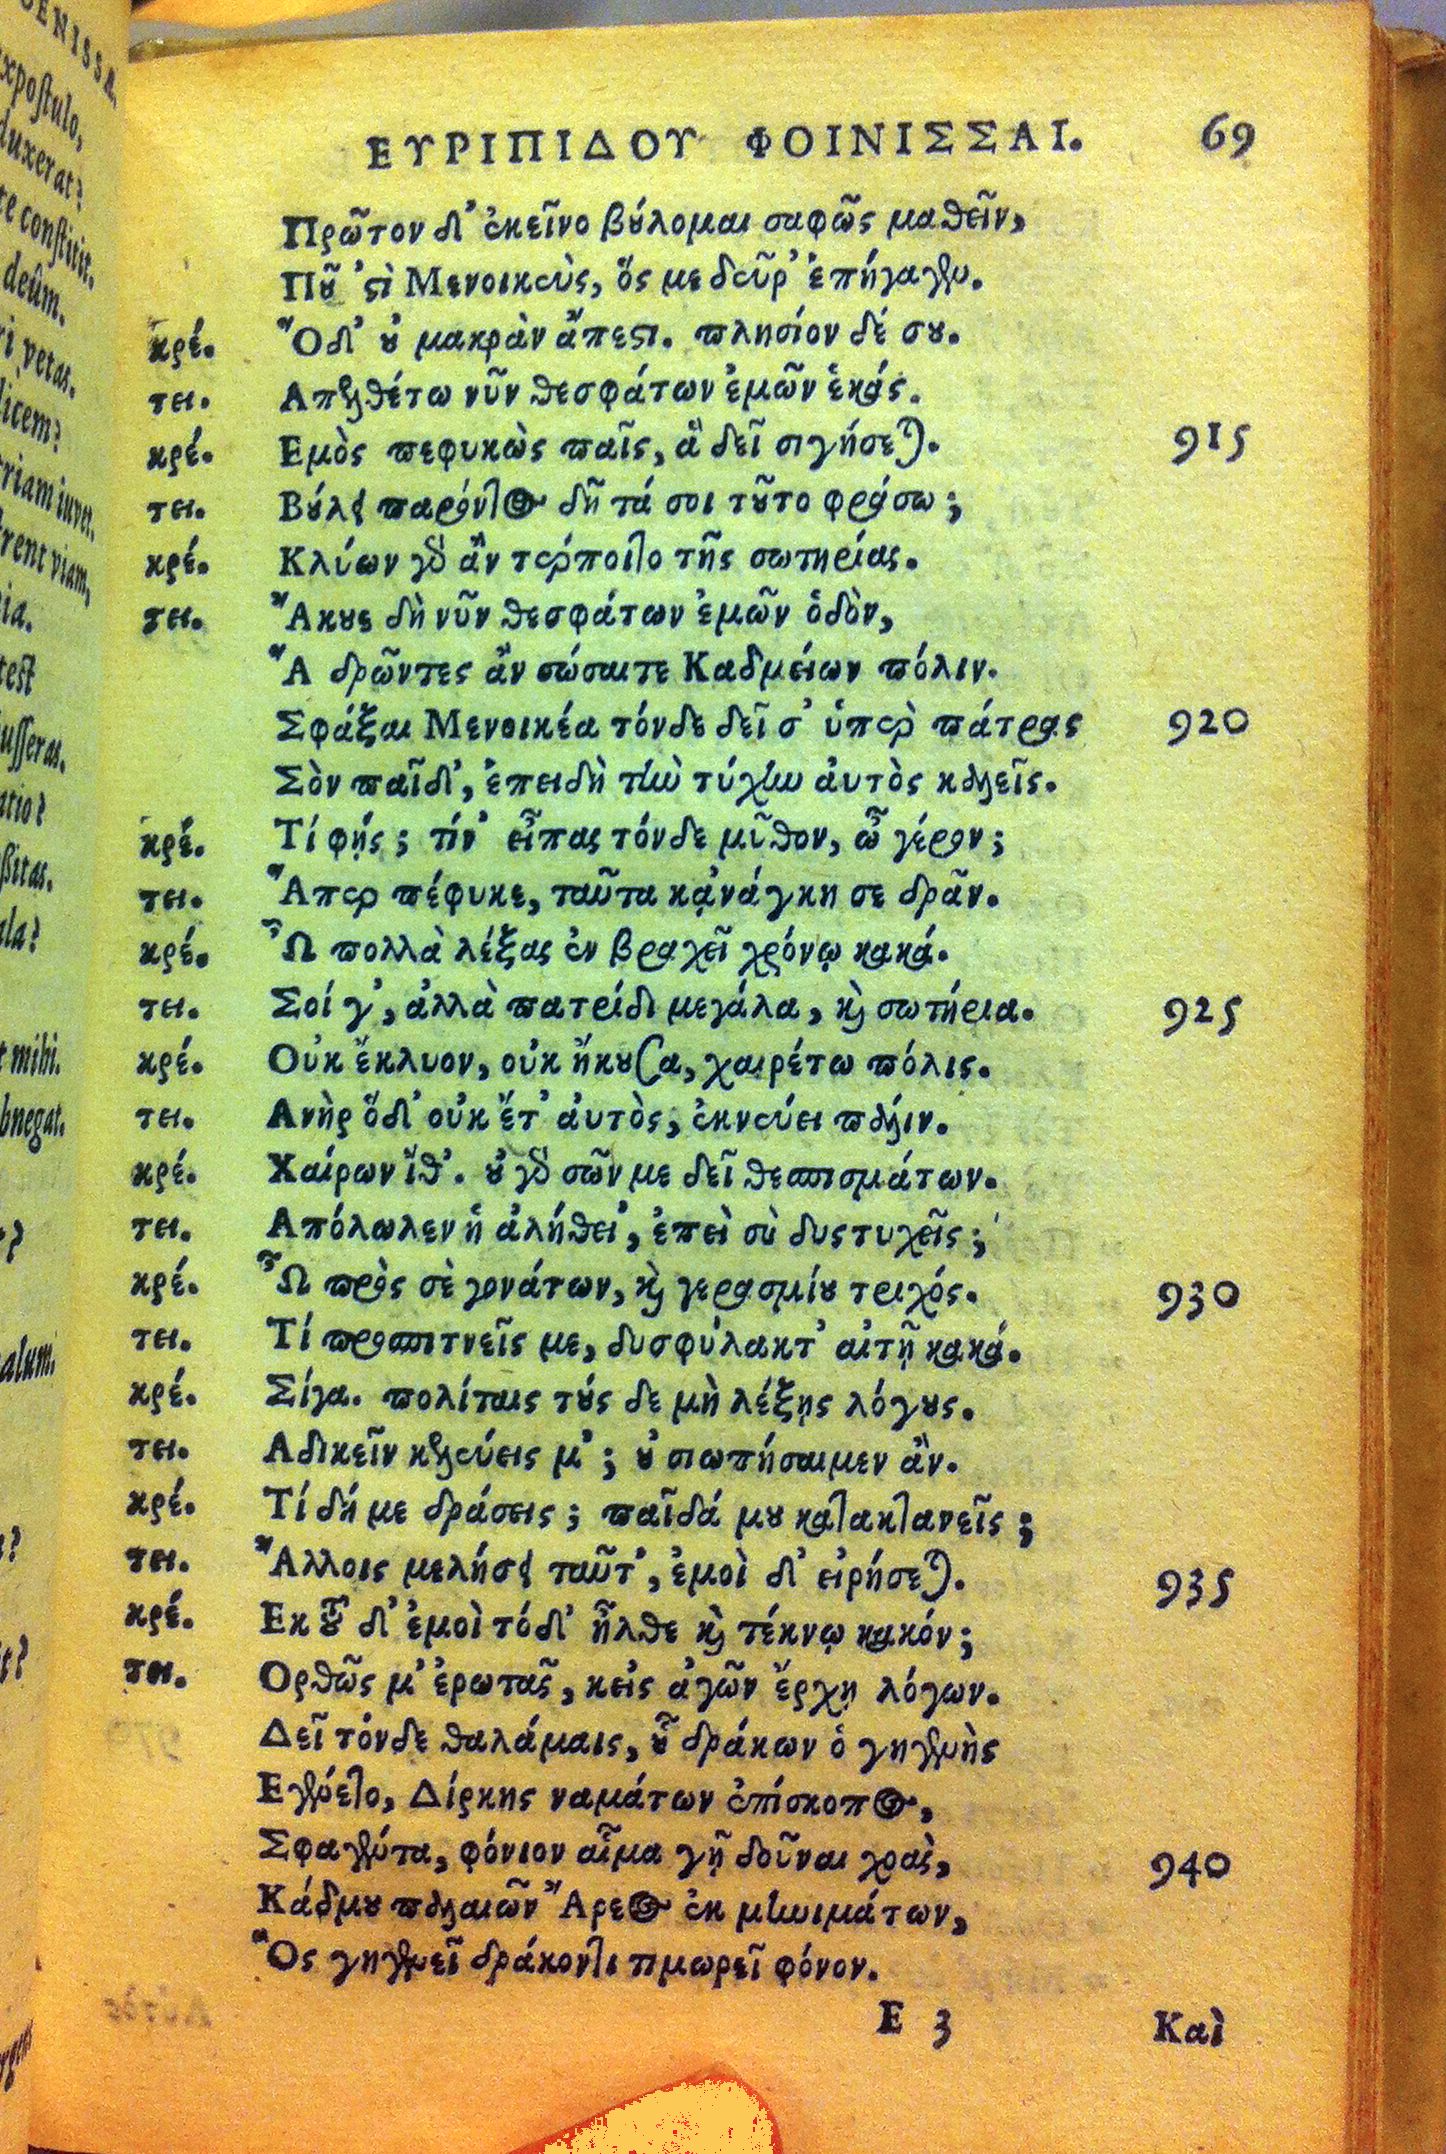 ΕΥΡΙΠΙΔΟΥ ΦΟΙΝΙΣΣΑΙ. 69
Πρῶτον δ' ἐκεῖνο βούλομαι σαφῶς μαθεῖν,
Ποῦ 'στὶ Μενοικεὺς, ὅς με δεῦρ' ἐπήγαγεν.
κρέ. Ὅδ' οὐ μακρὰν ἄπεστι. πλησίον δέ σου.
τει. Απελθέτω νῦν θεσφάτων ἐμῶν ἑκάς.
κρέ. Εμὸς πεφυκὼς παῖς, ἃ δεῖ σιγήσεται. 915
τει. Βούλει παρόντος δῆτά σοι τοῦτο φράσω;
κρέ. Κλύων γὰρ ἂν τέρποιτο τῆς σωτηρίας.
τει. Ἄκουε δὴ νῦν θεσφάτων ἐμῶν ὁδὸν,
Ἃ δρῶντες ἂν σώσαιτε Καδμείων πόλιν.
Σφάξαι Μενοικέα τόνδε δεῖ σ' ὑπὲρ πάτρας 920
Σὸν παῖδ', ἐπειδὴ τὴν τύχην αὐτὸς καλεῖς.
κρέ. Τί φής; τίν' εἶπας τόνδε μῦθον, ὦ γέρον;
τει. Ἅπερ πέφυκε, ταῦτα κἀνάγκη σε δρᾶν.
κρέ. Ὦ πολλὰ λέξας ἐν βραχεῖ χρόνῳ κακά.
τει. Σοί γ', ἀλλὰ πατρίδι μεγάλα, καὶ σωτήρια. 925
κρέ. Οὐκ ἔκλυον, οὐκ ἤκουσα, χαιρέτω πόλις.
τει. Ανὴρ ὅδ' οὐκ ἔτ' αὐτὸς, ἐκνεύει πάλιν.
κρέ. Χαίρων ἴθ'. οὐ γὰρ σῶν με δεῖ θεσπισμάτων.
τει. Απόλωλεν ἡ ἀλήθει', ἐπεὶ σὺ δυστυχεῖς;
κρέ. Ὦ πρὸς σὲ γονάτων, καὶ γερασμίου τριχός. 930
τει. Τί προσπιτνεῖς με, δυσφύλακτ' αἰτῇ κακά.
κρέ. Σίγα. πολίταις τούς δε μὴ λέξῃς λόγους.
τει. Αδικεῖν κελεύεις μ'; οὐ σιωπήσαιμεν ἄν.
κρέ. Τί δή με δράσεις; παῖδά μου κατακτανεῖς;
τει. Ἄλλοις μελήσει ταῦτ', ἐμοὶ δ' εἰρήσεται. 935
κρέ. Εκ τοῦ δ' ἐμοὶ τόδ' ἦλθε καὶ τέκνῳ κακόν;
τει. Ορθῶς μ' ἐρωτᾶς, κεἰς ἀγῶν' ἔρχῃ λόγων.
Δεῖ τόνδε θαλάμαις, οὗ δράκων ὁ γηγενὴς
Εγένετο, Δίρκης ναμάτων ἐπίσκοπος,
Σφαγέντα, φόνιον αἷμα γῇ δοῦναι χοὰς, 940
Κάδμου παλαιῶν Ἄρεος ἐκ μηνιμάτων,
Ὃς γηγενεῖ δράκοντι τιμωρεῖ φόνον.
E 3 Καὶ